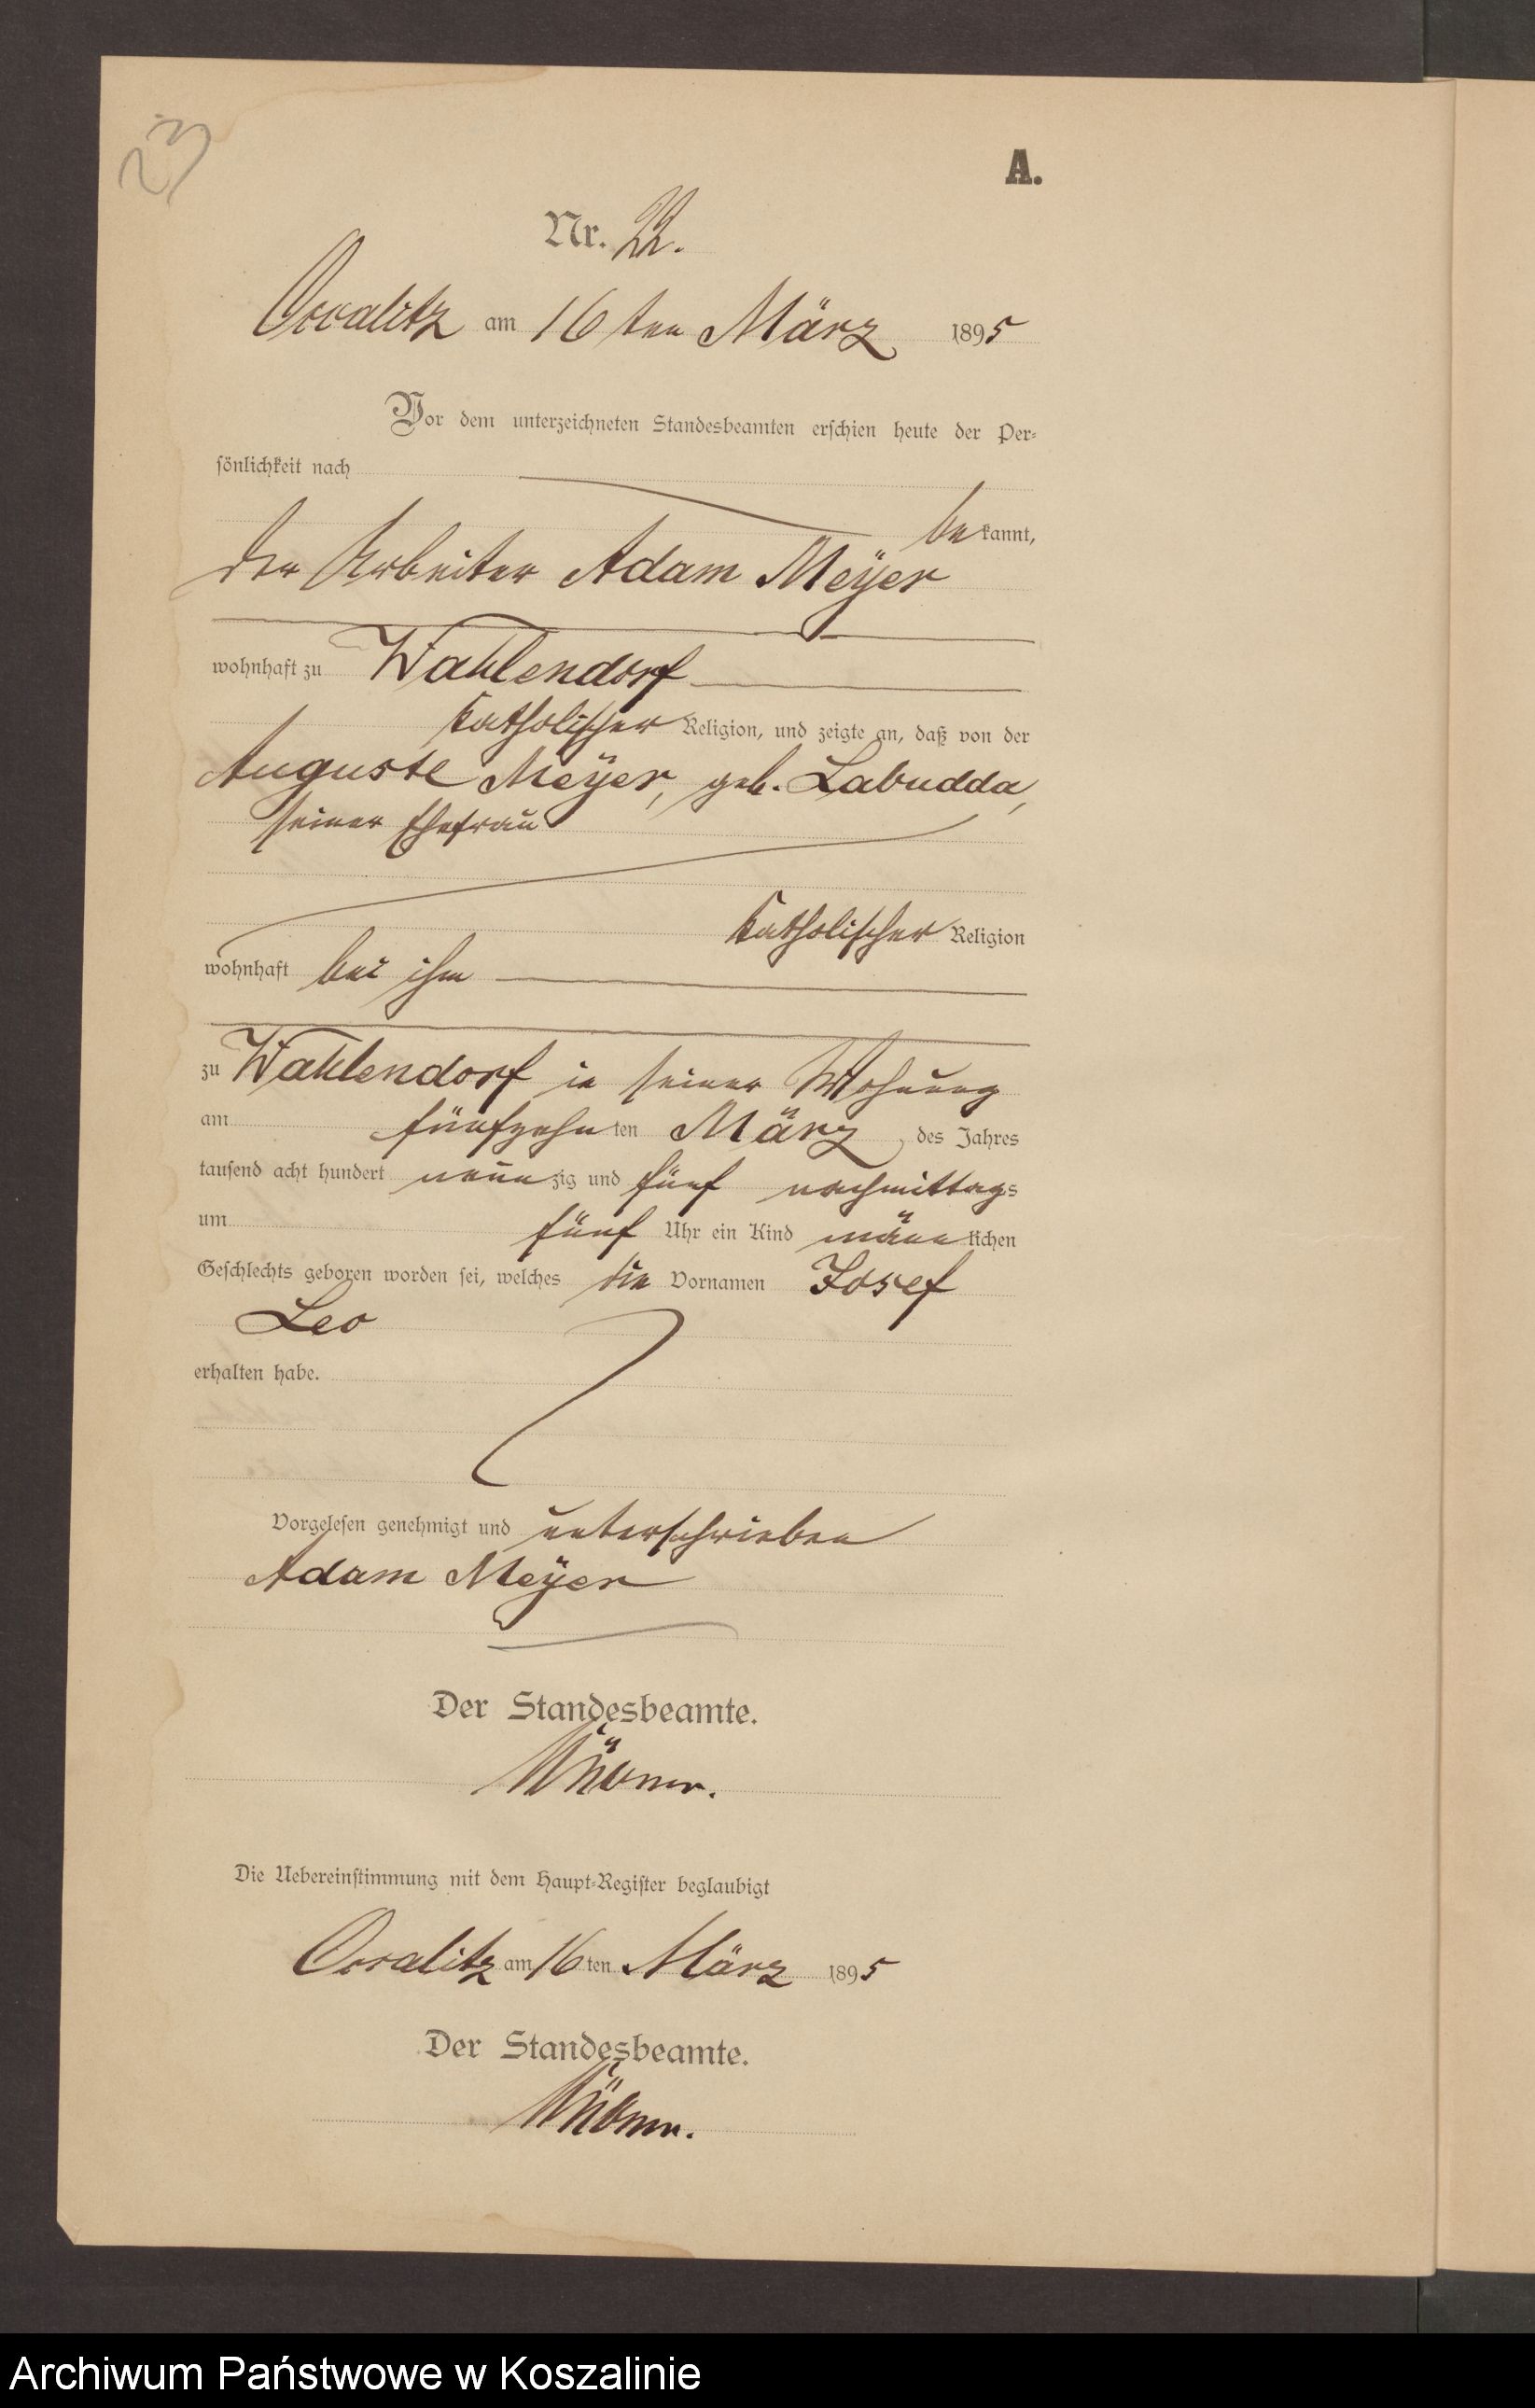 23
A.
Nr. 22.
Occalitz am 16ten März 1895
Vor dem unterzeichneten Standesbeamten erschien heute der Per-
sönlichkeit nach
bekannt,
der Arbeiter Adam Meÿer
wohnhaft zu Wahlendorf
katholischer Religion, und zeigte an, daß von der
Auguste Meÿer, geb. Labudda,
seiner Ehefrau
katholischer Religion
wohnhaft bei ihm
zu Wahlendorf in seiner Wohnung
am fünfzehnten März, des Jahres
tausend acht hundert neunzig und fünf nachmittags
um fünf Uhr ein Kind männlichen
Geschlechts geboren worden sei, welches die Vornamen Josef
Leo
erhalten habe.
Vorgelesen genehmigt und unterschrieben
Adam Meÿer
Der Standesbeamte.
Die Uebereinstimmung mit dem Haupt-Register beglaubigt
Occalitz am 16ten März 1895
Der Standesbeamte.
Archiwum Państwowe w Koszalinie